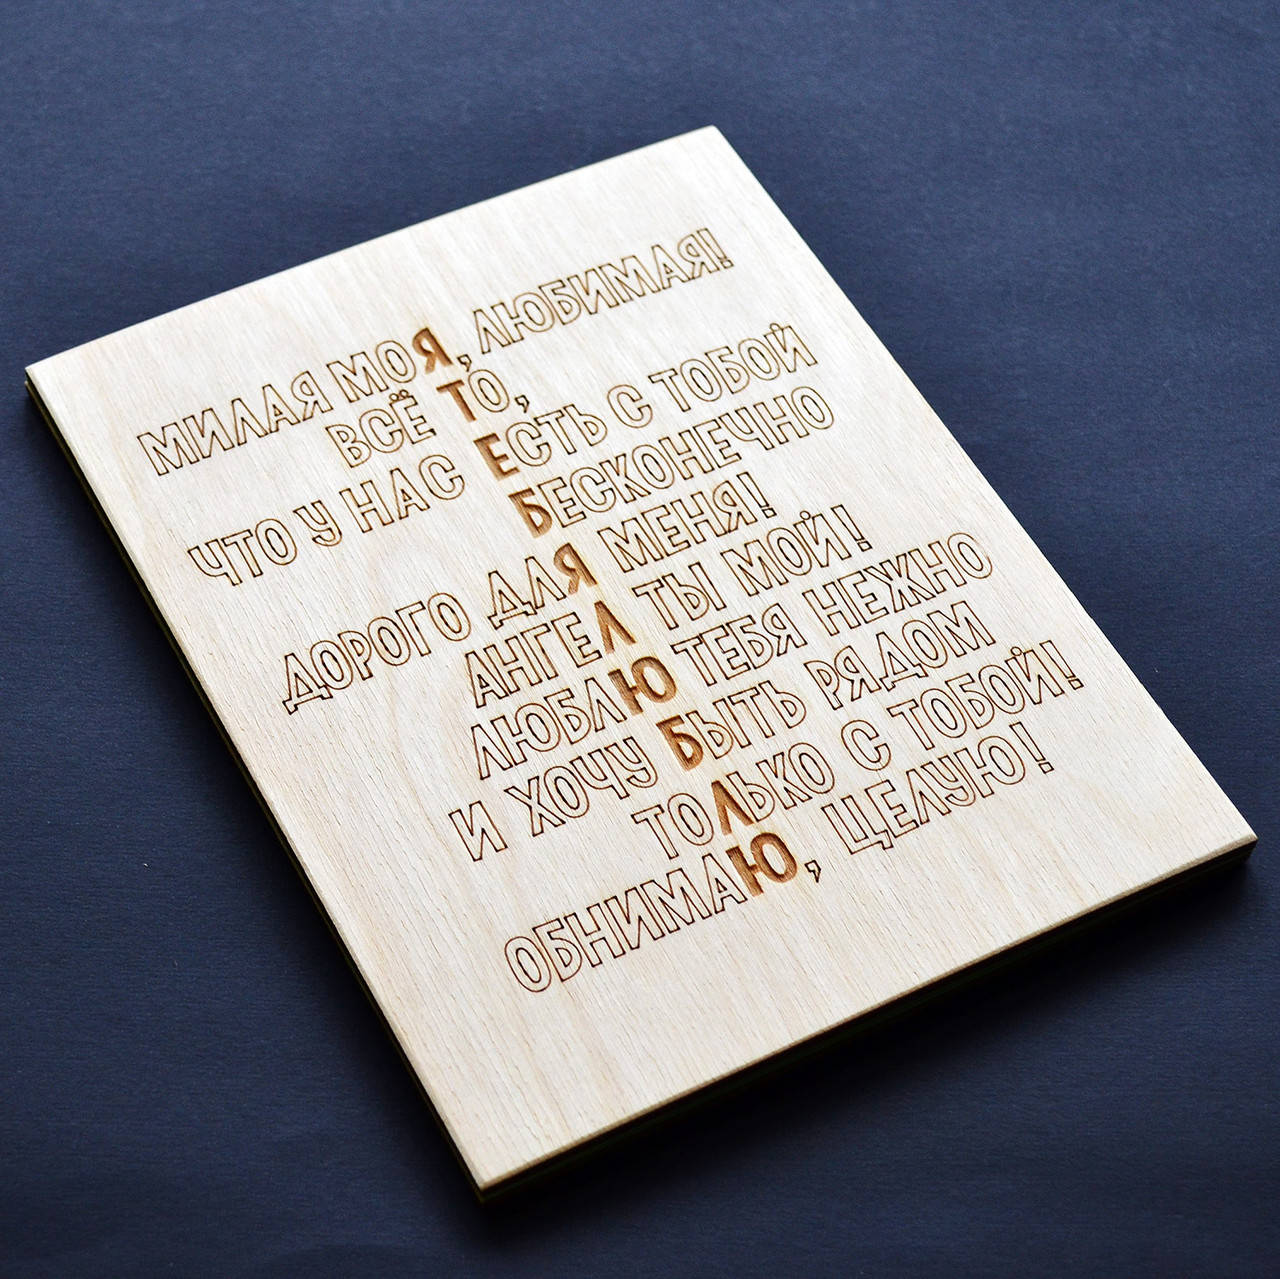 МИЛАЯ МОЯ, ЛЮБИМАЯ!
ВСЁ ТО,
ЧТО У НАС ЕСТЬ С ТОБОЙ
БЕСКОНЕЧНО
ДОРОГО ДЛЯ МЕНЯ!
АНГЕЛ ТЫ МОЙ!
ЛЮБЛЮ ТЕБЯ НЕЖНО
И ХОЧУ БЫТЬ РЯДОМ
ТОЛЬКО С ТОБОЙ!
ОБНИМАЮ, ЦЕЛУЮ!